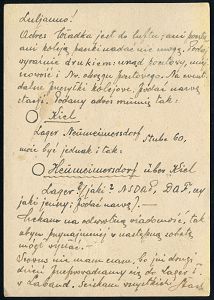 Luljanno!
Adres Władka jest do luftu; ani pocztą
ani koleją paczki nadać nie mogę. Podaj,
wyraźnie drukiem: urząd pocztowy, miej-
scowość i Nr. okręgu pocztowego. Na ewent.
dalsze przesyłki kolejowe, podaj nazwę
stacji. Podany adres mimo tak:
Kiel
Lager Neumeimersdorf Stube 60,
może być jednak i tak:
Heimeimersdorf über Kiel
Lager (jak? NSDAP, DAF, czy
jakiś inny; podaj nazwę).—
Czekam na odwrotną wiadomość, tak
abym przynajmniej w następną sobotę
mógł wysłać.—
nie mam czasu, bo już drugi
dzień przeprowadzamy się do Lager I
w Laband. Ściskam wszystkich